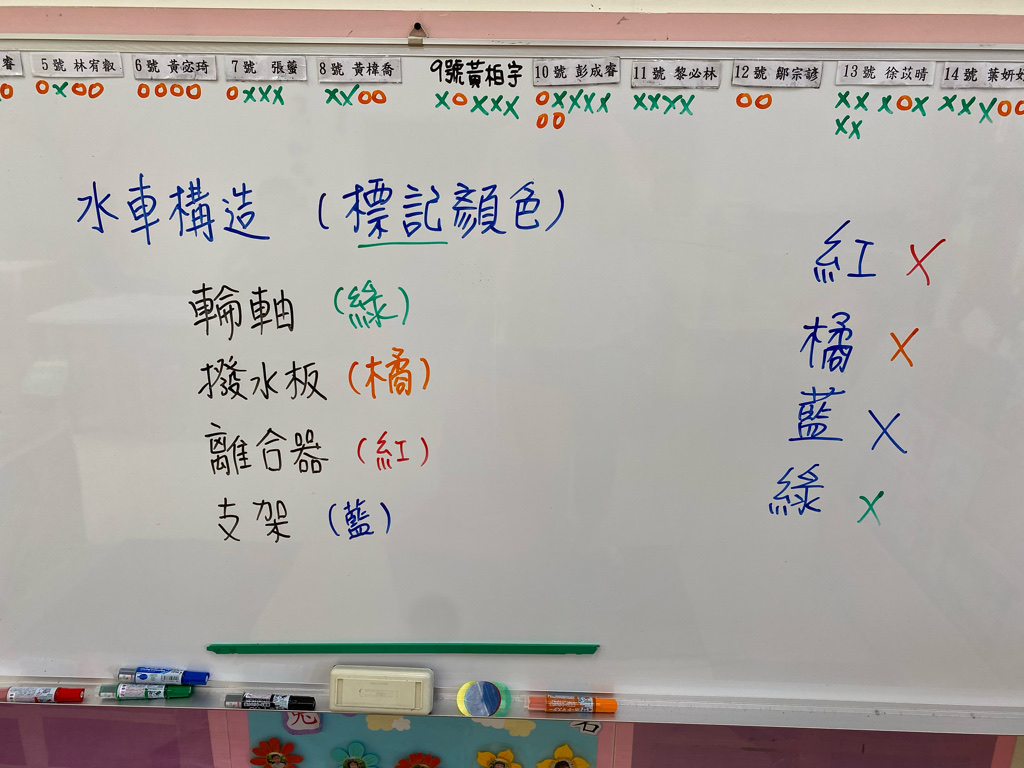 睿 5號 林宥叡 6號 黃宓琦 7號 張蕾 8號 黃樟喬 9號黃柏宇 10號 彭成睿 11號 黎必林 12號 鄒宗諺 13號 徐苡晴 14號 葉妍
O OXOO OOOO OXXX XXOO XOXXX OXXXX XXXX OO XXXOX XXXOO
OO XX
水車構造 (標記顏色)
紅 X
輪軸 (綠)
橘 X
撥水板 (橘)
藍 X
離合器 (紅)
綠 X
支架 (藍)